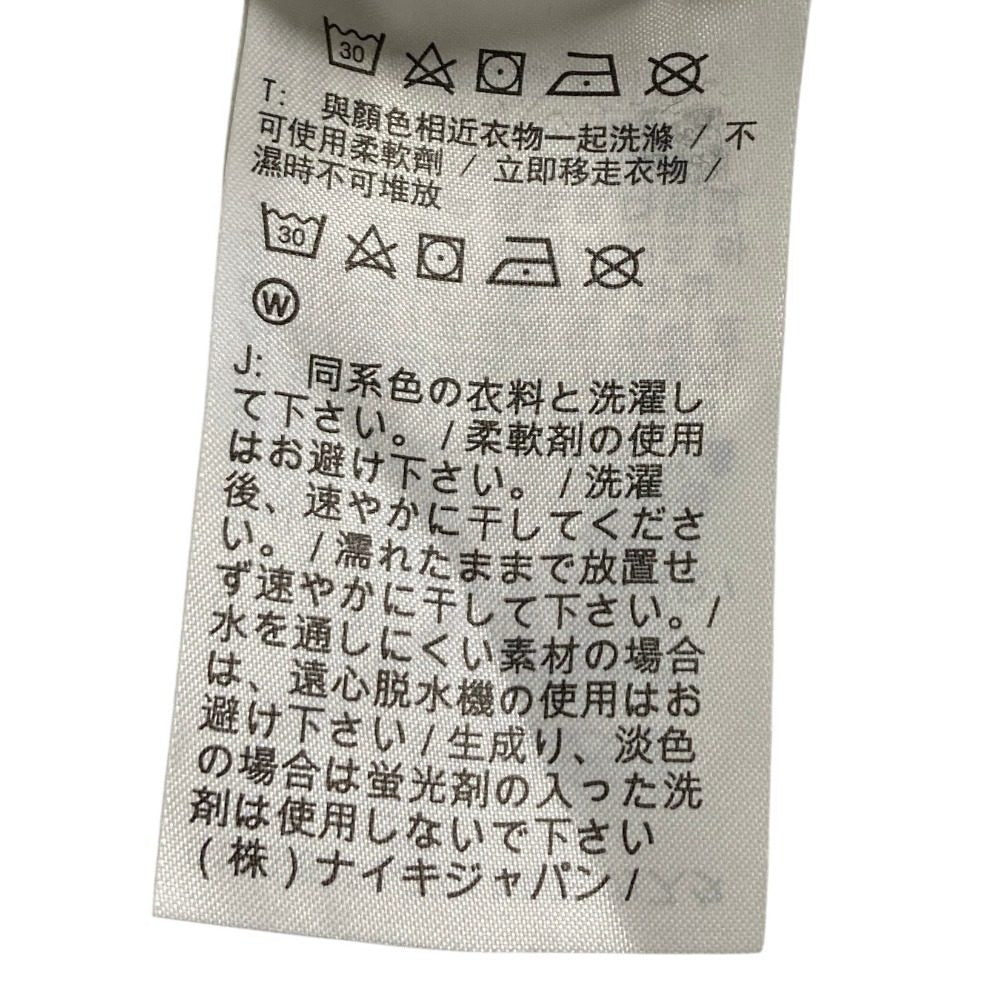 30
T: 與顏色相近衣物一起洗滌 / 不
可使用柔軟劑 / 立即移走衣物 /
濕時不可堆放
30
W
J: 同系色の衣料と洗濯し
て下さい。 / 柔軟剤の使用
はお避け下さい。 / 洗濯
後、速やかに干してくださ
い。 / 濡れたままで放置せ
ず速やかに干して下さい。 /
水を通しにくい素材の場合
は、遠心脱水機の使用はお
避け下さい / 生成り、淡色
の場合は蛍光剤の入った洗
剤は使用しないで下さい
(株)ナイキジャパン /